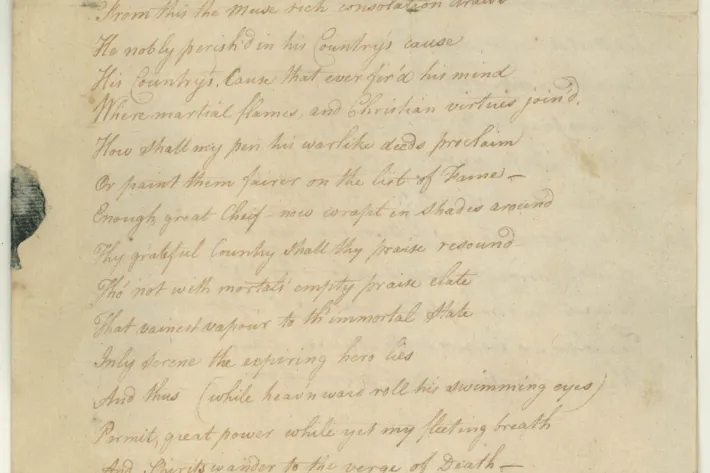 From this the Muse rich consolation draws
He nobly perish'd in his Country's cause
His Country's Cause that ever fir'd his mind
Where martial flames, and Christian virtues join'd.
How shall my pen his warlike deeds proclaim
Or paint them fairer on the list of Fame—
Enough great Cheif—now wrapt in shades around
Thy grateful Country shall thy praise resound
Tho' not with mortals' empty praise elate
That vainest vapour to th' immortal State
Inly serene the expiring hero lies
And thus (while heav'nward roll his swimming eyes)
Permit, great power while yet my fleeting breath
And Spirits wander to the verge of Death—